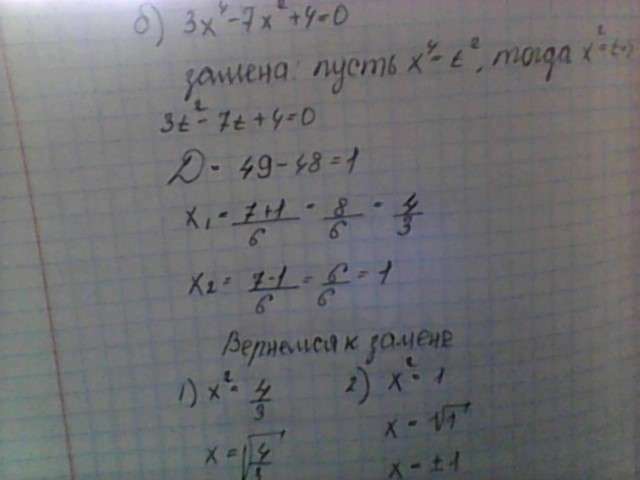 б) 3x⁴-7x²+4=0
замена: пусть x⁴=t², тогда x²=t
3t²-7t+4=0
D=49-48=1
x₁=(7+1)/6=8/6=4/3
x₂=(7-1)/6=6/6=1
Вернемся к замене
1) x²=4/3 2) x²=1
x=√(4/3) x=√1
x=±1